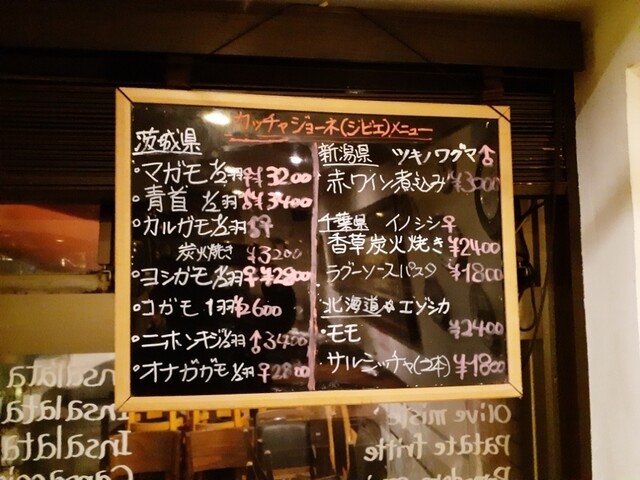 カッチャジョーネ(ジビエ)メニュー
茨城県
・マガモ½羽♀¥3200
・青首 ½羽♂¥3400
・カルガモ½羽
炭火焼き ¥3200
・ヨシガモ½羽♀¥2800
・コガモ 1羽¥2600
・ニホンキジ½羽♂3400
・オナガガモ½羽♀2800
新潟県 ツキノワグマ♂
赤ワイン煮込み¥3000
千葉県 イノシシ♀
香草炭火焼き¥2400
ラグーソースパスタ¥1800
北海道 エゾシカ
・モモ ¥2400
・サルシッチャ(2本)¥1800
Insalata
Insalata
Insalata
Olive miste
Patate fritte